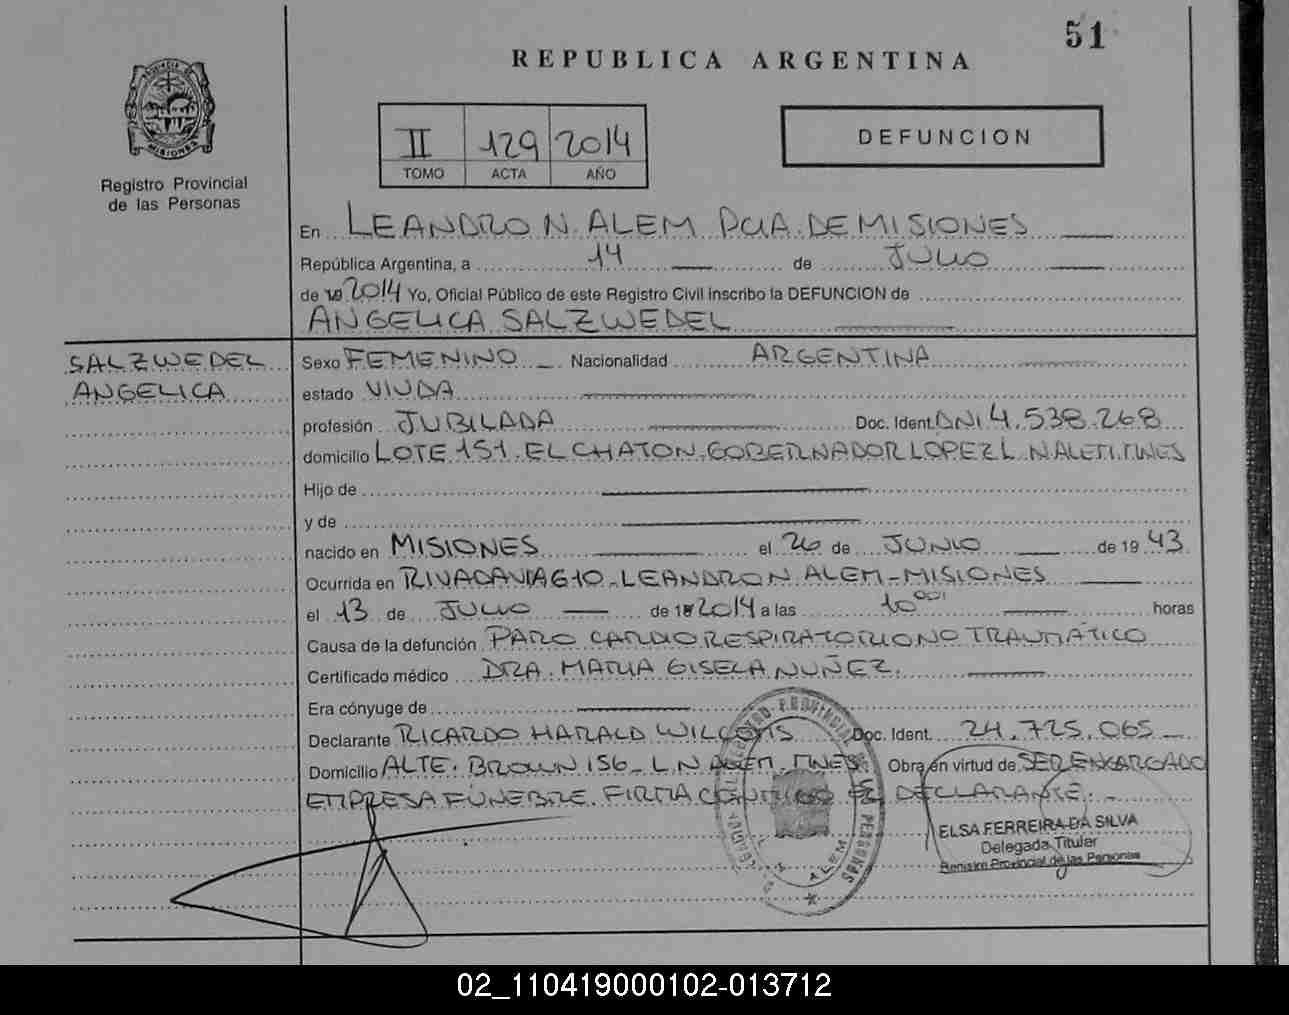 51
REPUBLICA ARGENTINA
PROVINCIA DE
MISIONES
Registro Provincial
de las Personas
II 129 2014
TOMO ACTA AÑO
DEFUNCION
En LEANDRO N. ALEM PCIA. DE MISIONES
República Argentina, a 14 de JULIO
de 19 2014 Yo, Oficial Público de este Registro Civil inscribo la DEFUNCION de
ANGELICA SALZWEDEL
SALZWEDEL
ANGELICA
Sexo FEMENINO Nacionalidad ARGENTINA
estado VIUDA
profesión JUBILADA Doc. Ident. DNI 4.538.268
domicilio LOTE 151. EL CHATON. GOBERNADOR LOPEZ L. N ALEM. MNES
Hijo de
y de
nacido en MISIONES el 26 de JUNIO de 19 43
Ocurrida en RIVADAVIA 610 - LEANDRO N. ALEM - MISIONES
el 13 de JULIO de 2014 a las 10 horas
Causa de la defunción PARO CARDIO RESPIRATORIO NO TRAUMÁTICO
Certificado médico DRA. MARIA GISELA NUÑEZ.
Era cónyuge de
Declarante RICARDO HARALD Doc. Ident. 24.725.065
Domicilio ALTE. BROWN 156 - L.N ALEM. MNES. Obra en virtud de SER ENCARGADO
EMPRESA FÚNEBRE. FIRMA CONMIGO EL DECLARANTE.
REGISTRO PROVINCIAL DE LAS PERSONAS
L. N. ALEM
ELSA FERREIRA DA SILVA
Delegada Titular
Registro Provincial de las Personas
02_110419000102-013712